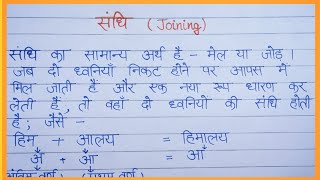 संधि (Joining)
संधि का सामान्य अर्थ है - मेल या जोड़।
जब दो ध्वनियाँ निकट होने पर आपस में
मिल जाती हैं और एक नया रूप धारण कर
लेती हैं, तो वहाँ दो ध्वनियों की संधि होती
है; जैसे -
हिम + आलय = हिमालय